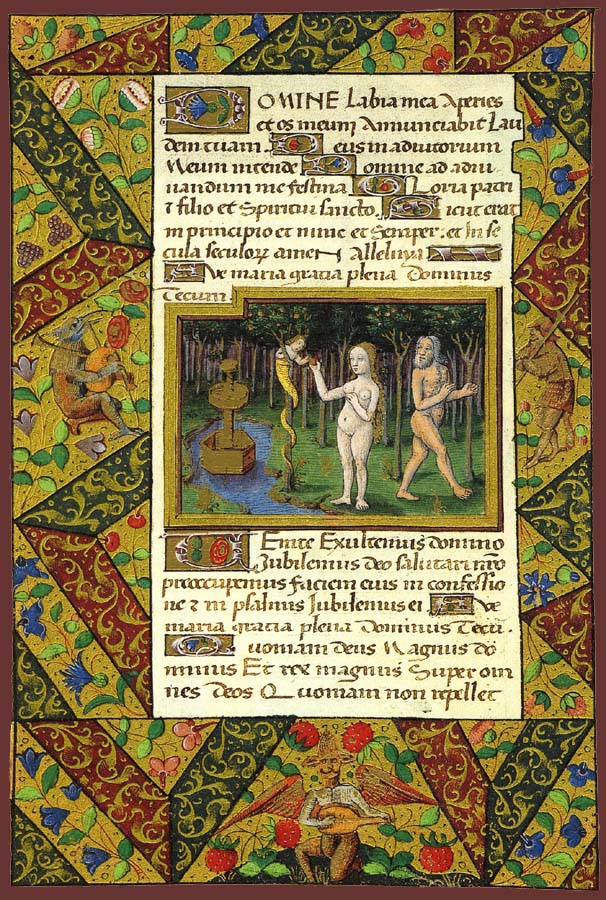 DOMINE Labia mea Aperies
et os meum Annunciabit Lau
dem tuam. Deus in adiutorium
Meum intende Domine ad adiu
uandum me festina Gloria patri
⁊ filio et Spiritui sancto. Sicut erat
in principio et nunc et Semper. et in se
cula seculorz amen Alleluya
Ave maria gracia plena Dominus
Tecum.
Venite Exultemus domino
Jubilemus deo salutari nro
preoccupemus faciem eius in confessio
ne ⁊ in psalmis Jubilemus ei Ave
maria gracia plena Dominus Tecu.
Quoniam deus Magnus do
minus Et rex magnus Super om
nes deos Quoniam non repellet